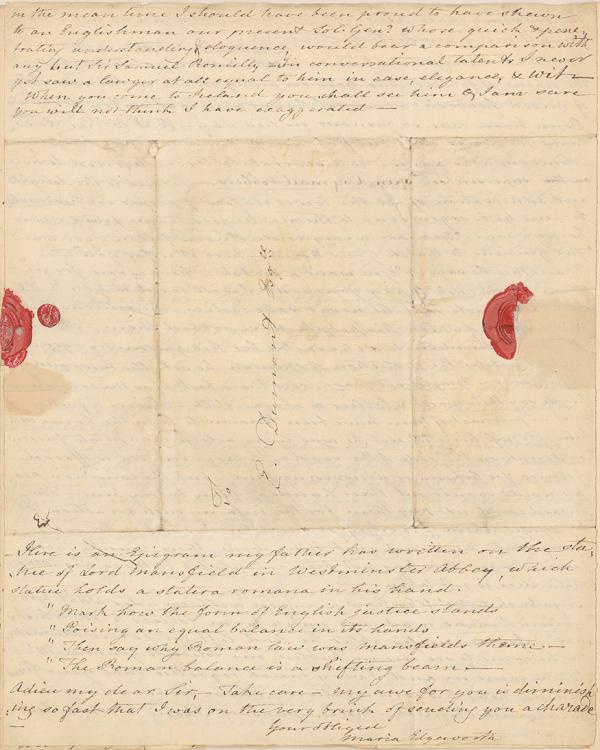 in the mean time I should have been proud to have shewn
to an Englishman our present Sol: Gen.l whose quick & pene
trating understanding & eloquence, would bear a comparison with
any but Sir Samuel Romilly in conversational talents I never
yet saw a lawyer at all equal to him in ease, elegance, & wit—
When you come to Ireland you shall see him & I am sure
you will not think I have exaggerated—
To
E. Dumont Esqr.
Here is an Epigram my father has written on the sta-
tue of Lord Mansfield in Westminster Abbey, which
statue holds a statera romana in his hand.
" Mark how the form of English justice stands
" Poising an equal balance in its hands
" Then say why Roman law was mansfields theme—
" The Roman balance is a shifting beam—
Adieu my dear Sir,— Take care— my awe for you is diminish
ing so fast that I was on the very brink of sending you a charade
Your obliged
Maria Edgeworth